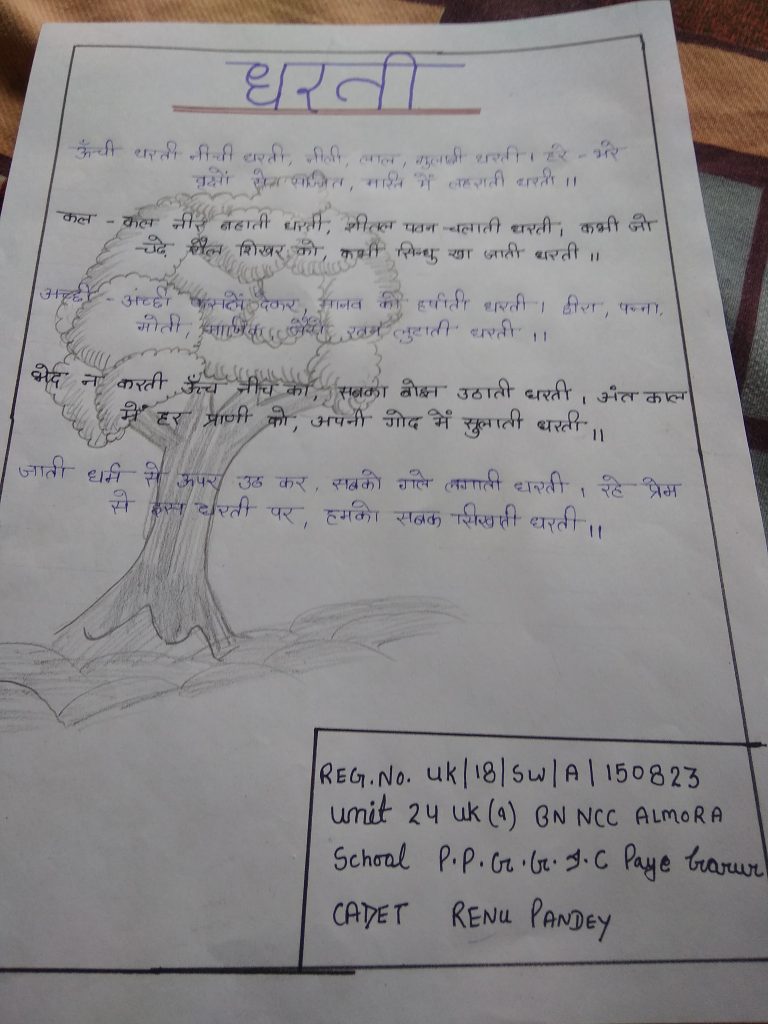 धरती
ऊँची धरती नीची धरती, नीली, लाल, गुलाबी धरती। हरे - भरे
वृक्षों से सज्जित, में लहराती धरती।।
कल - कल नीर बहाती धरती, शीतल पवन चलाती धरती, कभी जो
चढ़े शैल शिखर को, कभी सिन्धु खा जाती धरती।।
अच्छी - अच्छी फसलें देकर, मानव को हर्षाती धरती। हीरा, पन्ना,
मोती, माणिक, जैसे रत्न लुटाती धरती ।।
भेद न करती ऊँच नीच का, सबका बोझ उठाती धरती, अंत काल
में हर प्राणी को, अपनी गोद में सुलाती धरती।।
जाती धर्म से ऊपर उठ कर, सबको गले लगाती धरती, रहे प्रेम
से इस धरती पर, हमको सबक सिखाती धरती ।।
REG.No. UK/18/SW/A/150823
Unit 24 UK(a) BN NCC ALMORA
School P.P.G.G.I.C Paye Garur
CADET RENU PANDEY